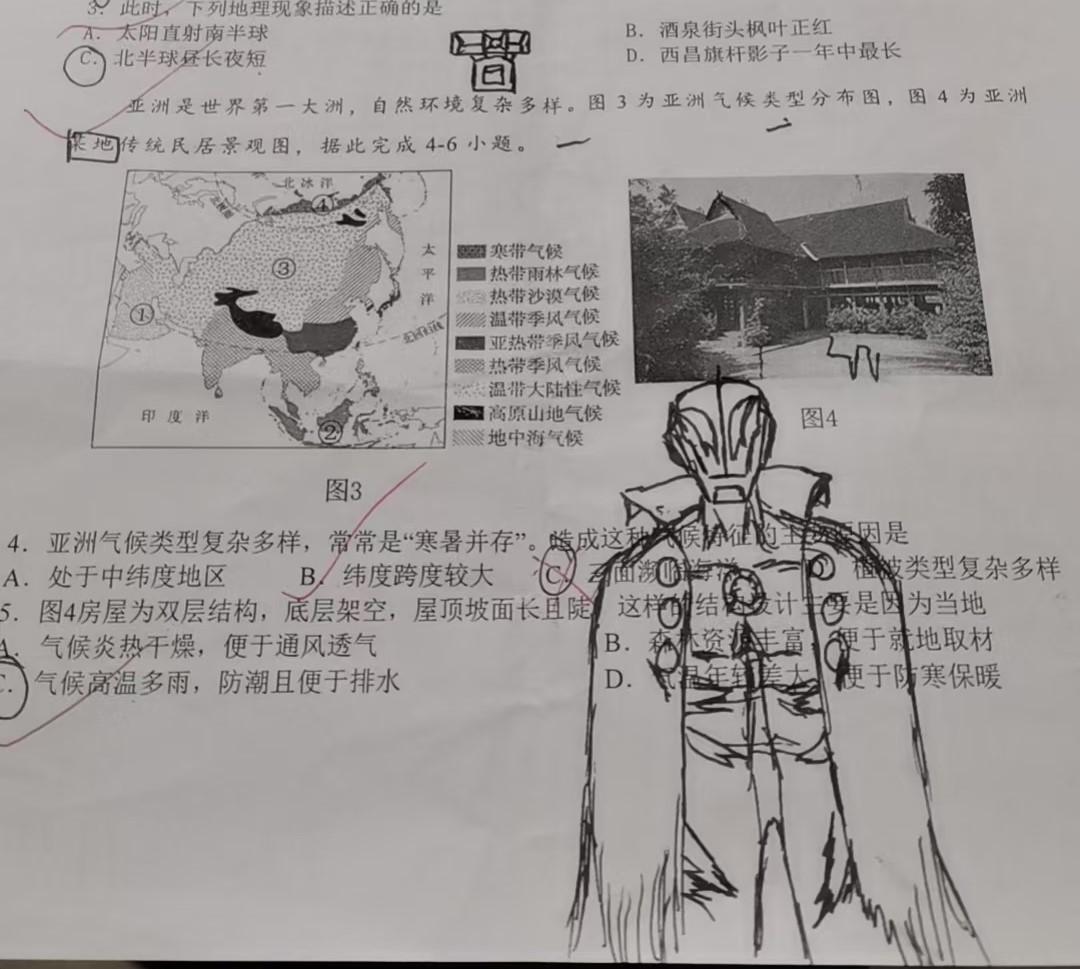 3. 此时，下列地理现象描述正确的是
A. 太阳直射南半球 B. 酒泉街头枫叶正红
C. 北半球昼长夜短 D. 西昌旗杆影子一年中最长
亚洲是世界第一大洲，自然环境复杂多样。图 3 为亚洲气候类型分布图，图 4 为亚洲
某地传统民居景观图，据此完成 4-6 小题。
北冰洋
④
③
①
②
太平洋
北回归线
印度洋
寒带气候
热带雨林气候
热带沙漠气候
温带季风气候
亚热带季风气候
热带季风气候
温带大陆性气候
高原山地气候
地中海气候
图3
图4
4. 亚洲气候类型复杂多样，常常是“寒暑并存”。造成这种气候特征的主要原因是
A. 处于中纬度地区 B. 纬度跨度较大 C. 三面濒临海洋 D. 植被类型复杂多样
5. 图4房屋为双层结构，底层架空，屋顶坡面长且陡，这样的结构设计主要是因为当地
A. 气候炎热干燥，便于通风透气 B. 森林资源丰富，便于就地取材
C. 气候高温多雨，防潮且便于排水 D. 气温年较差大，便于防寒保暖